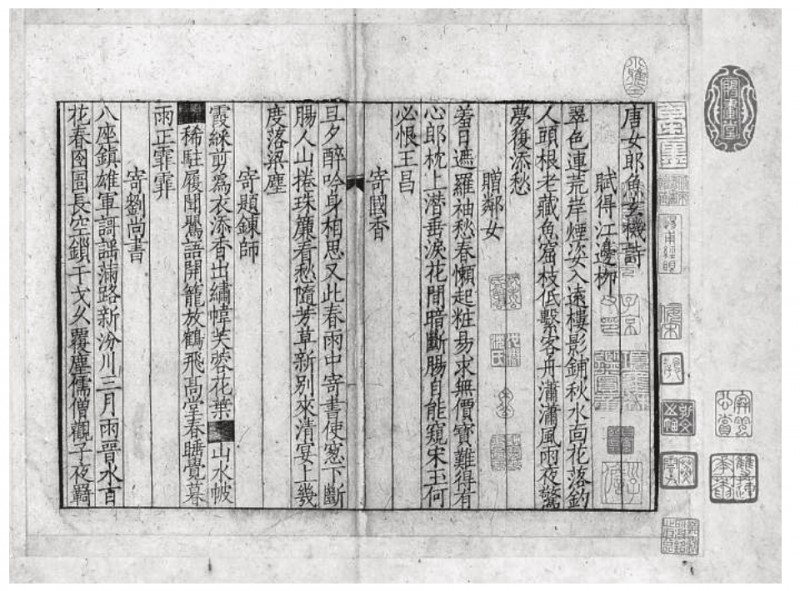 唐女郎魚玄機詩
賦得江邊柳
翠色連荒岸煙姿入遠樓影鋪秋水面花落釣
人頭根老藏魚窟枝低繫客舟瀟瀟風雨夜驚
夢復添愁
贈鄰女
羞日遮羅袖愁春懶起粧易求無價寶難得有
心郎枕上潛垂淚花間暗斷腸自能窺宋玉何
必恨王昌
寄國香
旦夕醉吟身相思又此春雨中寄書使窓下斷
腸人山捲珠簾看愁隨芳草新別來清宴上幾
度落梁塵
寄題鍊師
霞綵剪爲衣添香出繡幃芙蓉花葉山水帔
稀駐履聞鶯語開籠放鶴飛高堂春睡覺暮
雨正霏霏
寄劉尚書
八座鎮雄軍謌謡滿路新汾川三月雨晉水百
花春囹圄長空鎖干戈久覆塵儒僧觀子夜羇